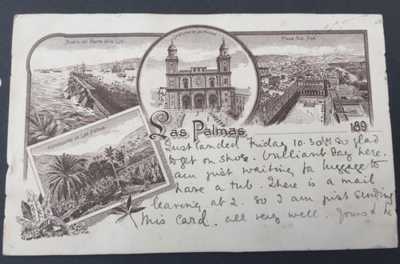 Muelle del Puerto de la Luz
Plaza Sta. Ana
Las Palmas
189
Just landed Friday 10.30 AM so glad
to get on shore. Brilliant Day here.
am just waiting for luggage to
have a tub. There is a mail
leaving at 2. So I am just sending
this card. all very well. Yours